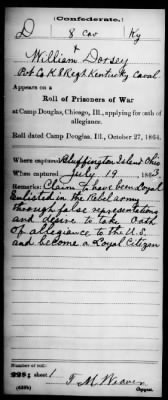 (Confederate.)
D 8 Cav Ky
William Dorsey
Pvt Co K 8 Regt Kentucky Caval
Appears on a
Roll of Prisoners of War
at Camp Douglas, Chicago, Ill., applying for oath of
allegiance.
Roll dated Camp Douglas, Ill., October 27, 1864.
Where captured Buffington Island Ohio
When captured July 19, 1863.
Remarks: Claim to have been Loyal
Enlisted in the Rebel army
through false representations
and desire to take Oath
of allegiance to the U.S.
and become a Loyal Citizen
Number of roll:
228; sheet 1
T. M. Weaver
Copyist.